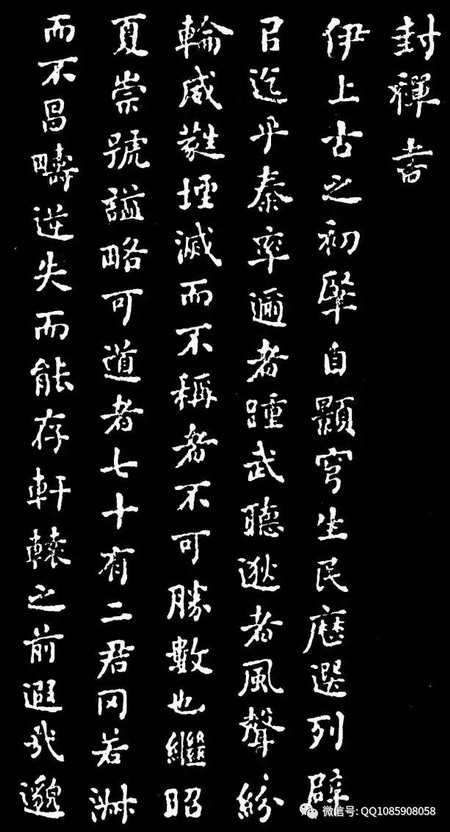 封禪書
伊上古之初肇自顥穹生民歷選列辟
㠯迄乎秦率邇者踵武聽逖者風聲紛
輪威蕤堙滅而不稱者不可勝數也繼昭
夏崇號謚略可道者七十有二君罔若淑
而不昌疇逆失而能存軒轅之前遐哉邈
微信号: QQ1085908058